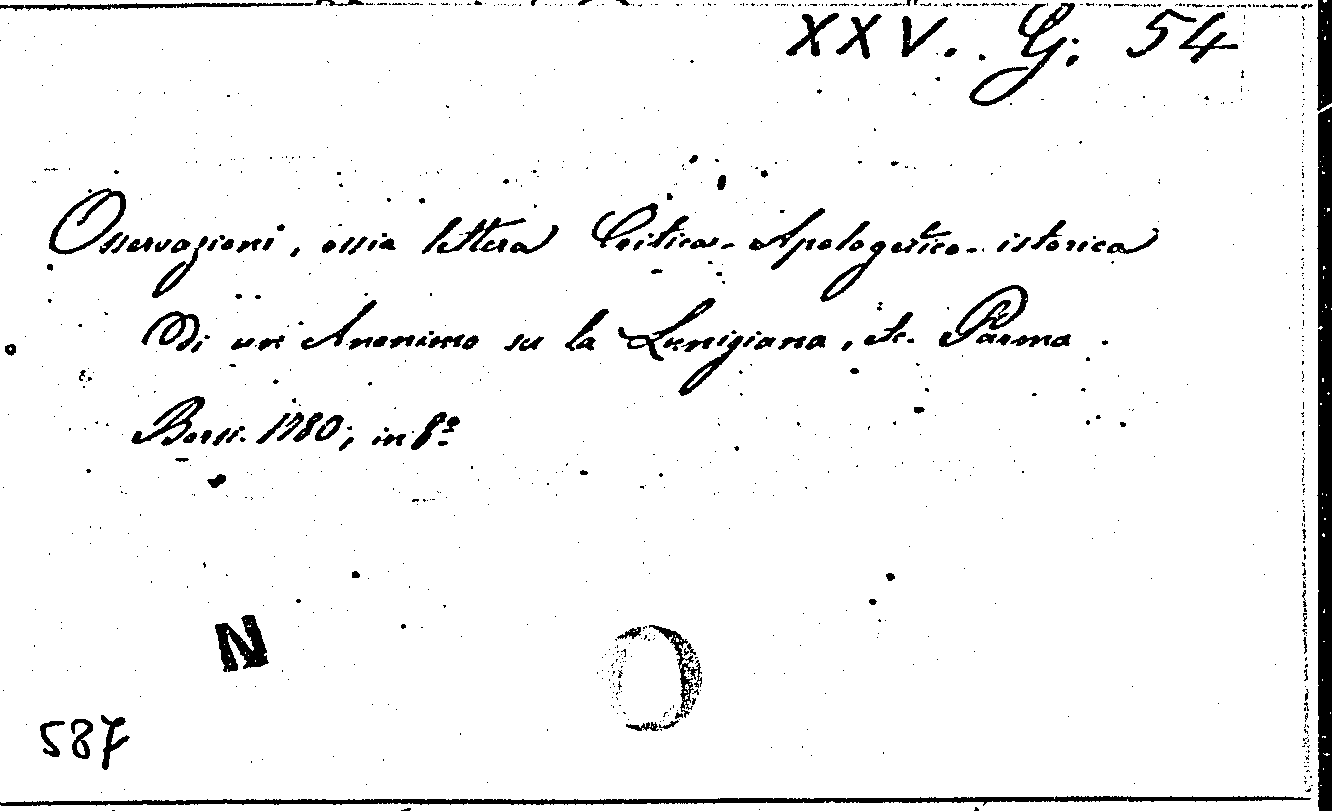 XXV. G. 54
Osservazioni, ossia lettera Critica-Apologetico-istorica
Di un Anonimo su la Lunigiana, etc. Parma.
Borsi. 1780, in 8º
N
587